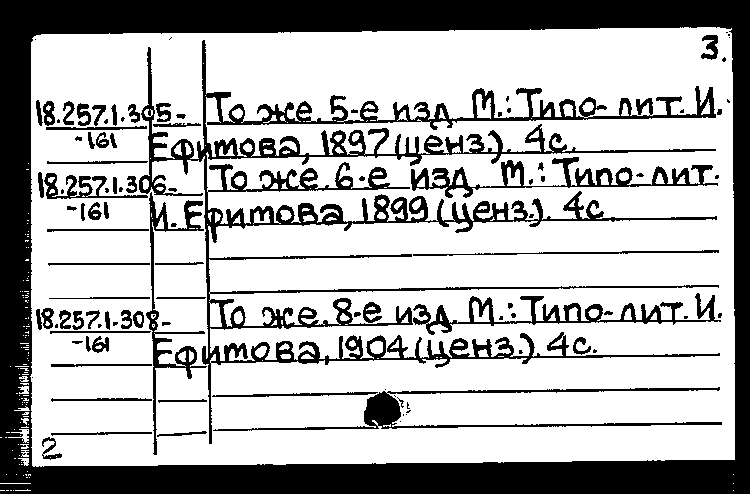 3.
18.257.1.305- То же. 5-е изд. М.: Типо-лит. И.
-161 Ефитова, 1897 (ценз.). 4с.
18.257.1.306- То же. 6-е изд. М.: Типо-лит.
-161 И. Ефитова, 1899 (ценз.). 4с
18.257.1.308- То же. 8-е изд. М.: Типо-лит. И.
-161 Ефитова, 1904 (ценз.). 4с.
2